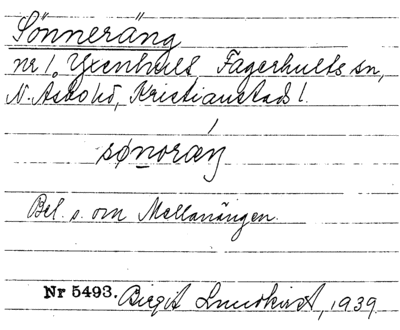 Sönneräng
nr 1, Yxenhult, Fagerhults sn,
N. Åsbo hd, Kristianstads l.
sønoræŋ
Bel. s. om Mellanängen.
Nr 5493. Birgit Lundkvist, 1939